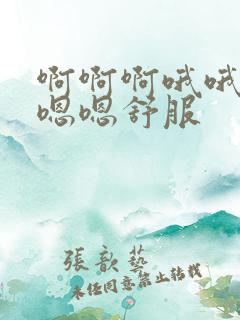 啊啊啊哦哦
嗯嗯舒服
張歆藝
未經同意禁止轉載